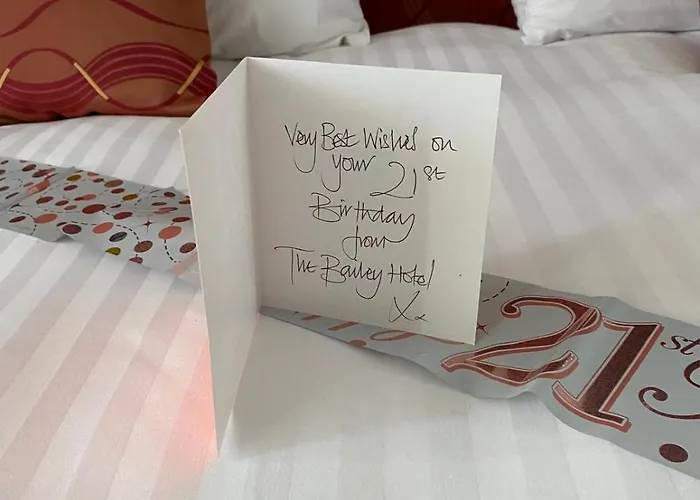 Very Best Wishes on
your 21st
Birthday
from
The Bailey Hotel
Xx
21st